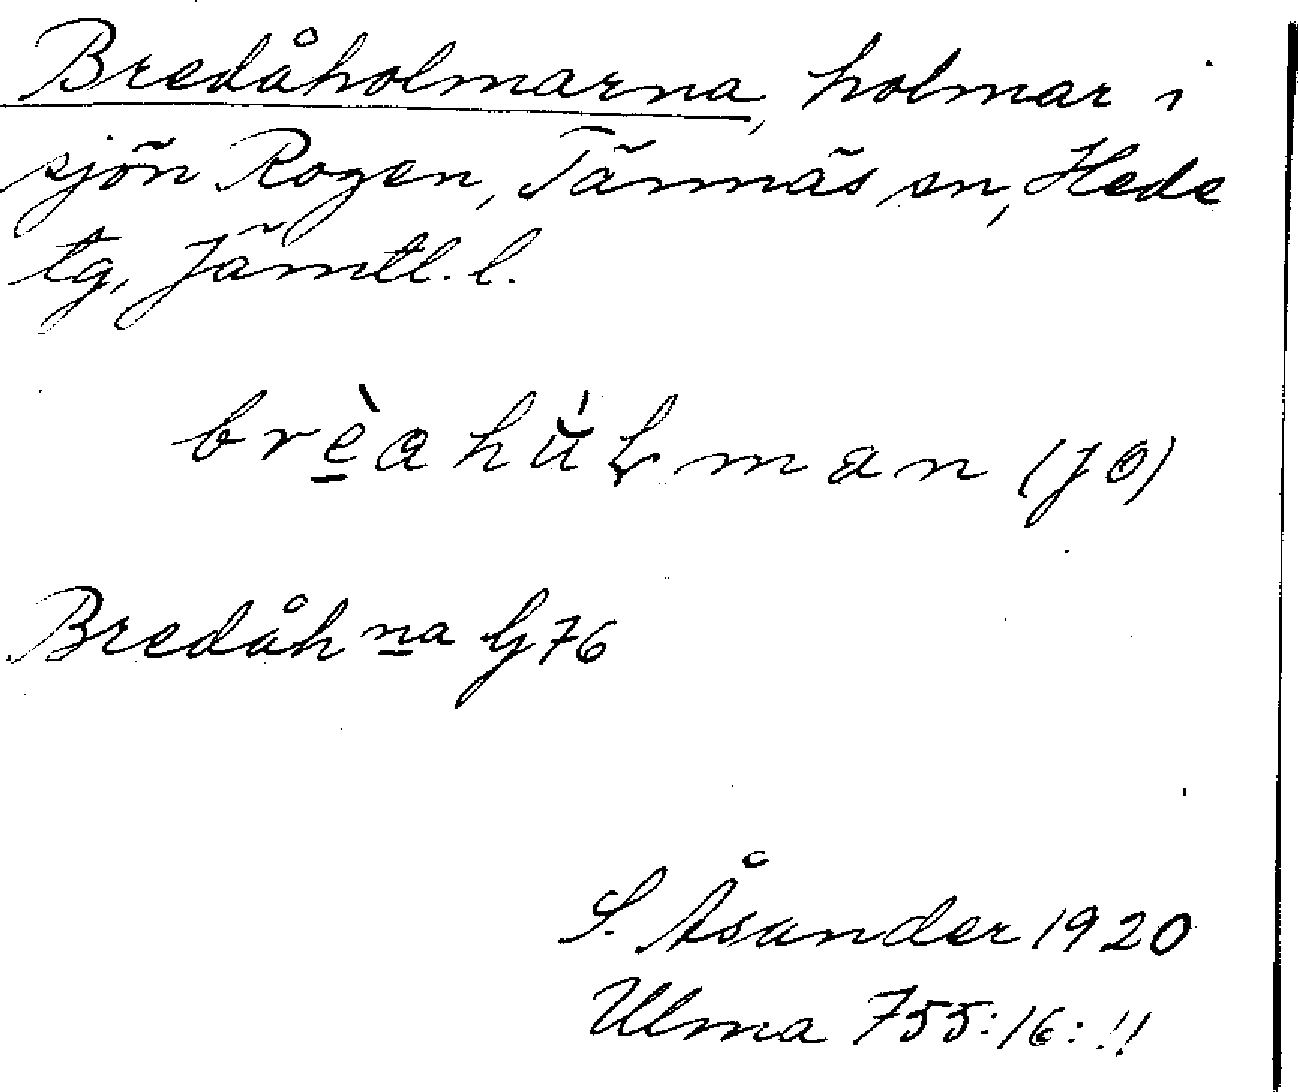 Bredåholmarna, holmar i
sjön Rogen, Tännäs sn, Hede
tg, Jämtl. l.
brèahúlman (JÖ)
Bredåhna G 76
S. Åsander 1920
Ulma 755:16: !!